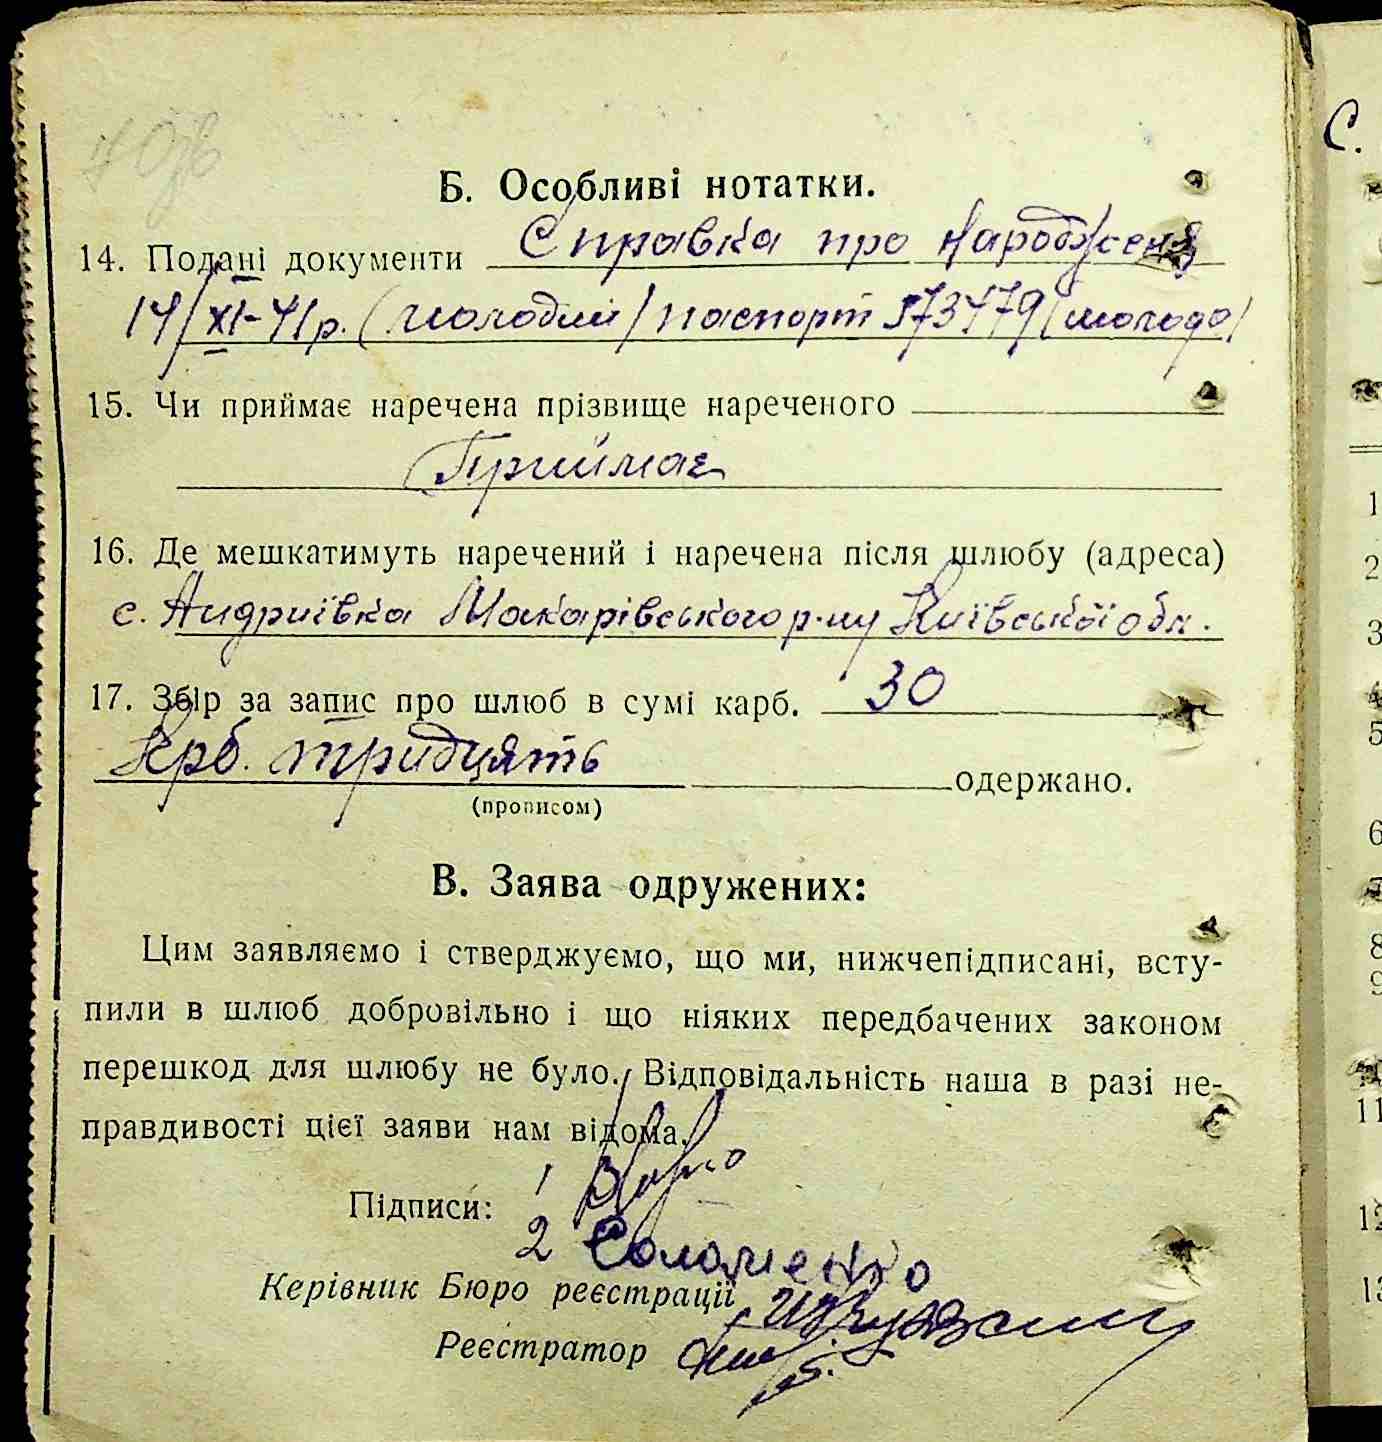 Б. Особливі нотатки.
14. Подані документи Справка про народження
14/XI-41р. (молодий/ паспорт 573479 (молода)
15. Чи приймає наречена прізвище нареченого
Приймає
16. Де мешкатимуть наречений і наречена після шлюбу (адреса)
с. Андриївка Макарівського р-ну Київської обл.
17. Збір за запис про шлюб в сумі карб. 30
Крб. тридцять одержано.
(прописом)
В. Заява одружених:
Цим заявляємо і стверджуємо, що ми, нижчепідписані, всту-
пили в шлюб добровільно і що ніяких передбачених законом
перешкод для шлюбу не було. Відповідальність наша в разі не-
правдивості цієї заяви нам відома.
Підписи: 1
2 Соломенко
Керівник Бюро реєстрації
Реєстратор
С.
1
2
3
4
5
6
7
8
9
11
12
13